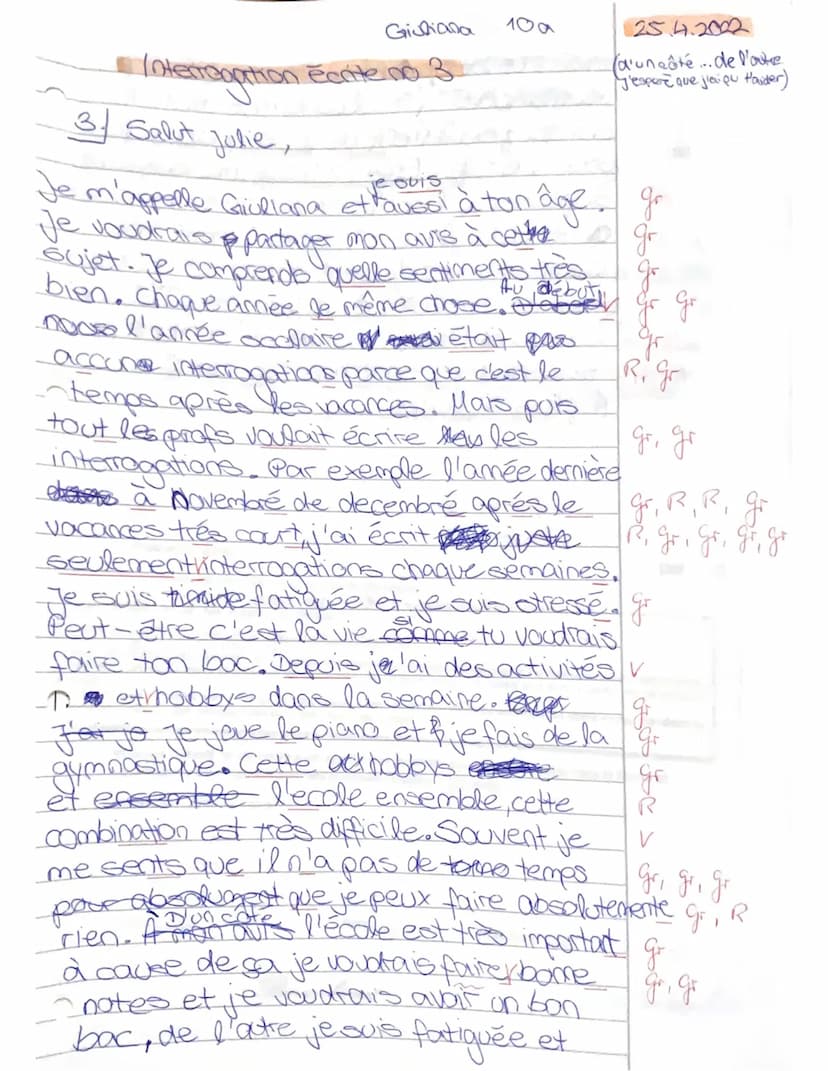 Giuliana 10a 25.4.2022
Interrogation écrite no 3
(d'un côté ... de l'autre
j'espère que j'ai pu t'aider)
3.) Salut Julie,
je suis
Je m'appelle Giuliana et aussi à ton âge. gr
Je voudrais partager mon avis à cette gr
sujet. Je comprends quelle sentiments très gr
Au début
bien. Chaque année le même chose. gr gr
l'année occlaire était pas gr
accune interrogations parce que c'est le R, gr
temps après les vacances. Mais pois
tout les profs voulait écrire les gr, gr
interrogations. Par exemple l'année dernière
à Novembré de decembré aprés le gr, R, R, gr
vacances trés court, j'ai écrit juste R, gr, gr, gr, gr
seulement interrogations chaque semaines.
Je suis timide fatiguée et je suis stressé. gr
si
Peut-être c'est la vie comme tu voudrais
faire ton bac. Depuis je l'ai des activités V
et hobbys dans la semaine. gr
J'ai jo Je joue le piano et je fais de la gr
gymnastique. Cette act hobbys gr
et ensemble l'ecole ensemble, cette R
combination est très difficile. Souvent je V
me sents que il n'a pas de temps gr, gr, gr
pour absolument que je peux faire absolutemente gr, R
D'un côté
rien. À mon avis l'école est très important gr
à cause de ça je voudrais faire bonne gr, gr
notes et je voudrais avoir un bon
bac, de l'atre je suis fatiguée et